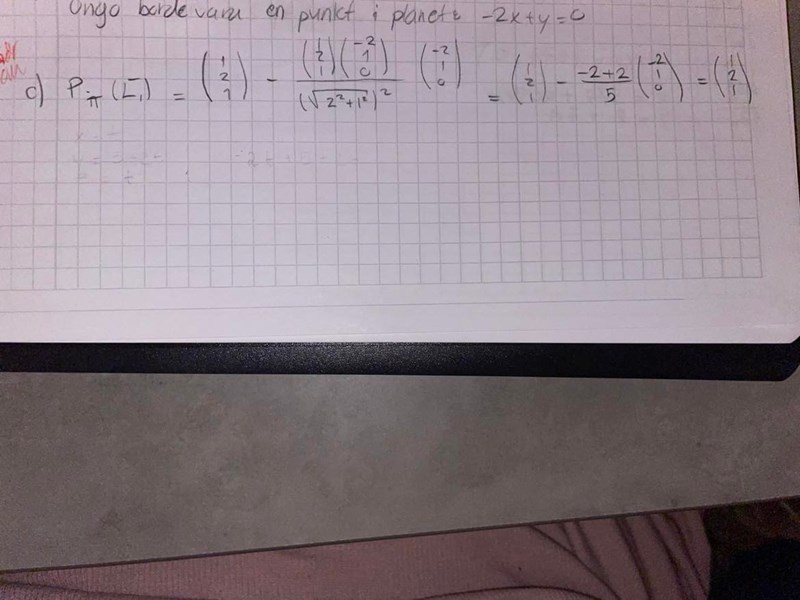 Ongo borde vara en punkt i planet: -2x+y=0
c) P_π(L₁) = (1 2 1) - (1 2 1)(-2 1 0) / (√(2²+1²))² (-2 1 0) = (1 2 1) - (-2+2)/5 (-2 1 0) = (1 2 1)